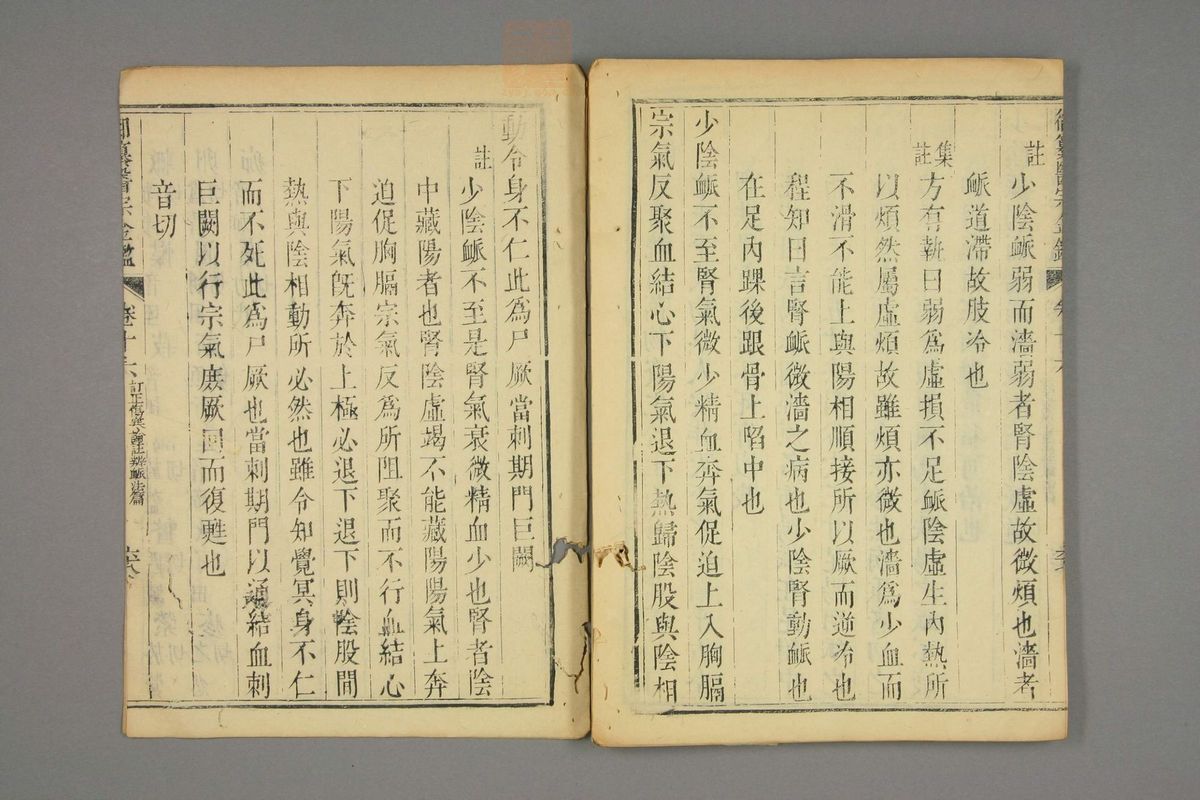 御纂醫宗金鑑 卷十六
註 少陰脈弱而濇弱者腎陰虛故微煩也濇者
脈道滯故肢冷也
集註 方有執曰弱爲虛損不足脈陰虛生內熱所
以煩然屬虛煩故雖煩亦微也濇爲少血而
不滑不能上與陽相順接所以厥而逆冷也
程知曰言腎脈微濇之病也少陰腎動脈也
在足內踝後跟骨上陷中也
少陰脈不至腎氣微少精血奔氣促迫上入胸膈
宗氣反聚血結心下陽氣退下熱歸陰股與陰相
動令身不仁此爲尸厥當刺期門巨闕
註 少陰脈不至是腎氣衰微精血少也腎者陰
中藏陽者也腎陰虛竭不能藏陽陽氣上奔
迫促胸膈宗氣反爲所阻聚而不行血結心
下陽氣旣奔於上極必退下退下則陰股間
熱與陰相動所必然也雖令知覺冥身不仁
而不死此爲尸厥也當刺期門以通結血刺
巨闕以行宗氣庶厥回而復甦也
音切
御纂醫宗金鑑 卷十六 訂正傷寒論註辨脈法篇